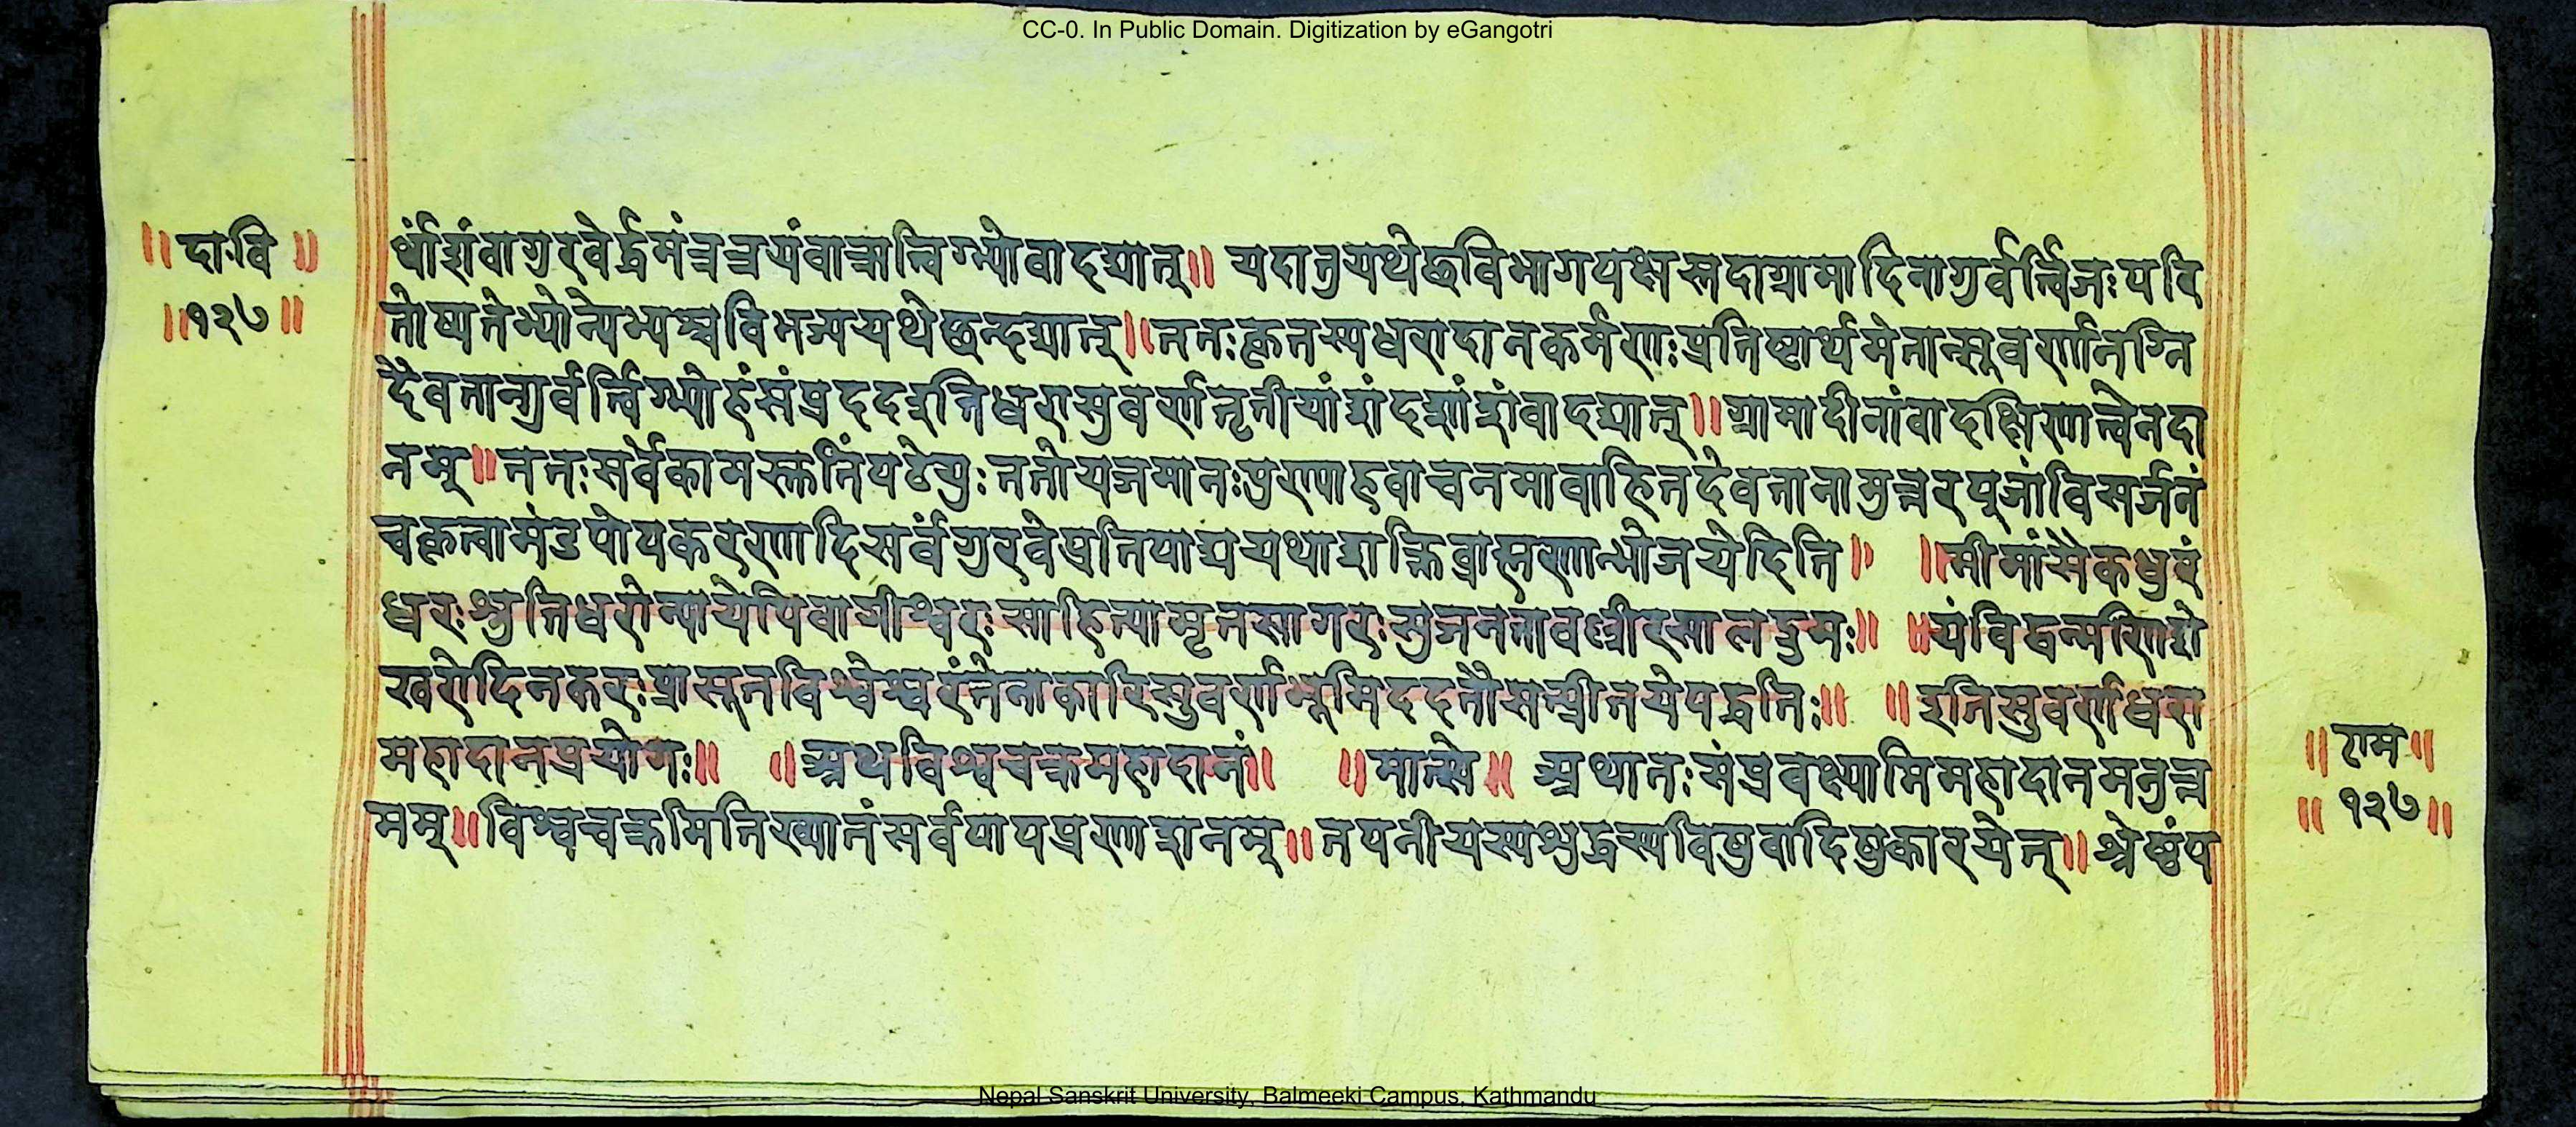 CC-0. In Public Domain. Digitization by eGangotri
॥ दा·वि ॥
॥१२७॥
र्थांशंवागुरवेर्द्धमंन्नच्चयंवान्नात्विग्भ्योवादद्यात्॥ यदातुयथेछविभागपक्षस्तदाग्रामादिनागुर्वर्त्विजःपरि
तोष्यतेभ्योन्येभ्यश्चविभज्ययथेछन्दद्यात्॥ततःकृतस्यधरादानकर्मणःप्रतिष्ठार्थमेतान्सुवर्णानग्नि
दैवतान्गुर्वर्त्विग्भ्योहंसंप्रददइतिधरासुवर्णतृतीयांशंदशांशंवादद्यात्॥ग्रामादीनांवादक्षिणात्वेनदा
नम्॥ततःसर्वेकामस्तुतिंपठेयुःततोयजमानःपुण्याहवाचनमावाहितदेवतानामुत्तरपूजांविसर्जनं
चकृत्वामंडपोपकरणादिसर्वंगुरवेप्रतिपाद्ययथाशक्तिब्राह्मणान्भोजयेदिति॥ ॥मीमांसैकधुरं
धरःश्रुतिधरोन्यायेपिवागीश्वरःसाहित्यामृतसागरःसुजनतावल्लीरसालद्रुमः॥ ॥यंविद्वन्मणिशे
खरोदिनकरःप्रासूतविश्वेश्वरंतेनाकारिसुवर्णभूमिददतौसत्प्रीतयेपद्धतिः॥ ॥इतिसुवर्णधरा
महादानप्रयोगः॥ ॥अथविश्वचक्रमहादानं॥ ॥मात्स्ये॥ अथातःसंप्रवक्ष्यामिमहादानमनुत्त
मम्॥विश्वचक्रमितिख्यातंसर्वपापप्रणाशनम्॥तपनीयस्यशुद्धस्यविषुवादिषुकारयेत्॥श्रेष्ठंप
॥ राम ॥
॥ १२७॥
Nepal Sanskrit University, Balmeeki Campus, Kathmandu